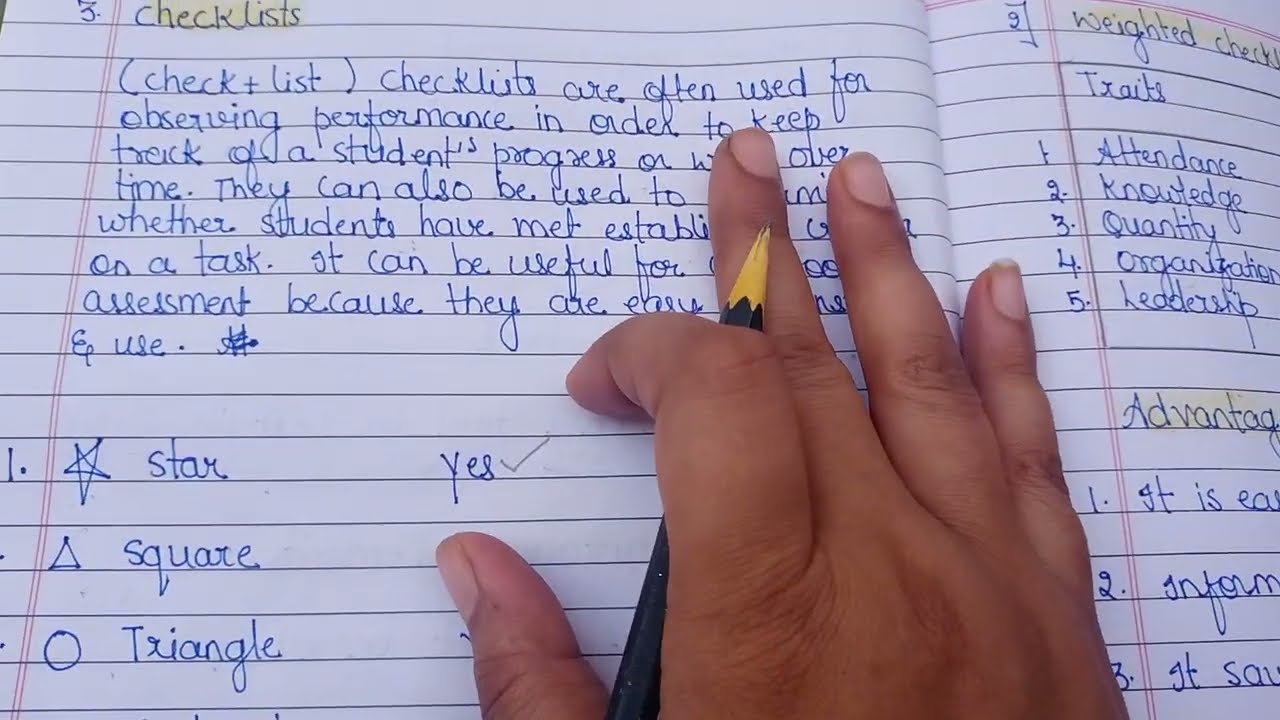 3. checklists
(check + list) checklists are often used for
observing performance in order to keep
track of a student's progress or over
time. They can also be used to
whether students have met
on a task. It can be useful for
assessment because they are easy
& use.
1. star yes ✓
square
Triangle
2] weighted
Traits
1 Attendance
2. Knowledge
3. Quantity
4. organization
5. Leadership
1. It is
2.
3. It